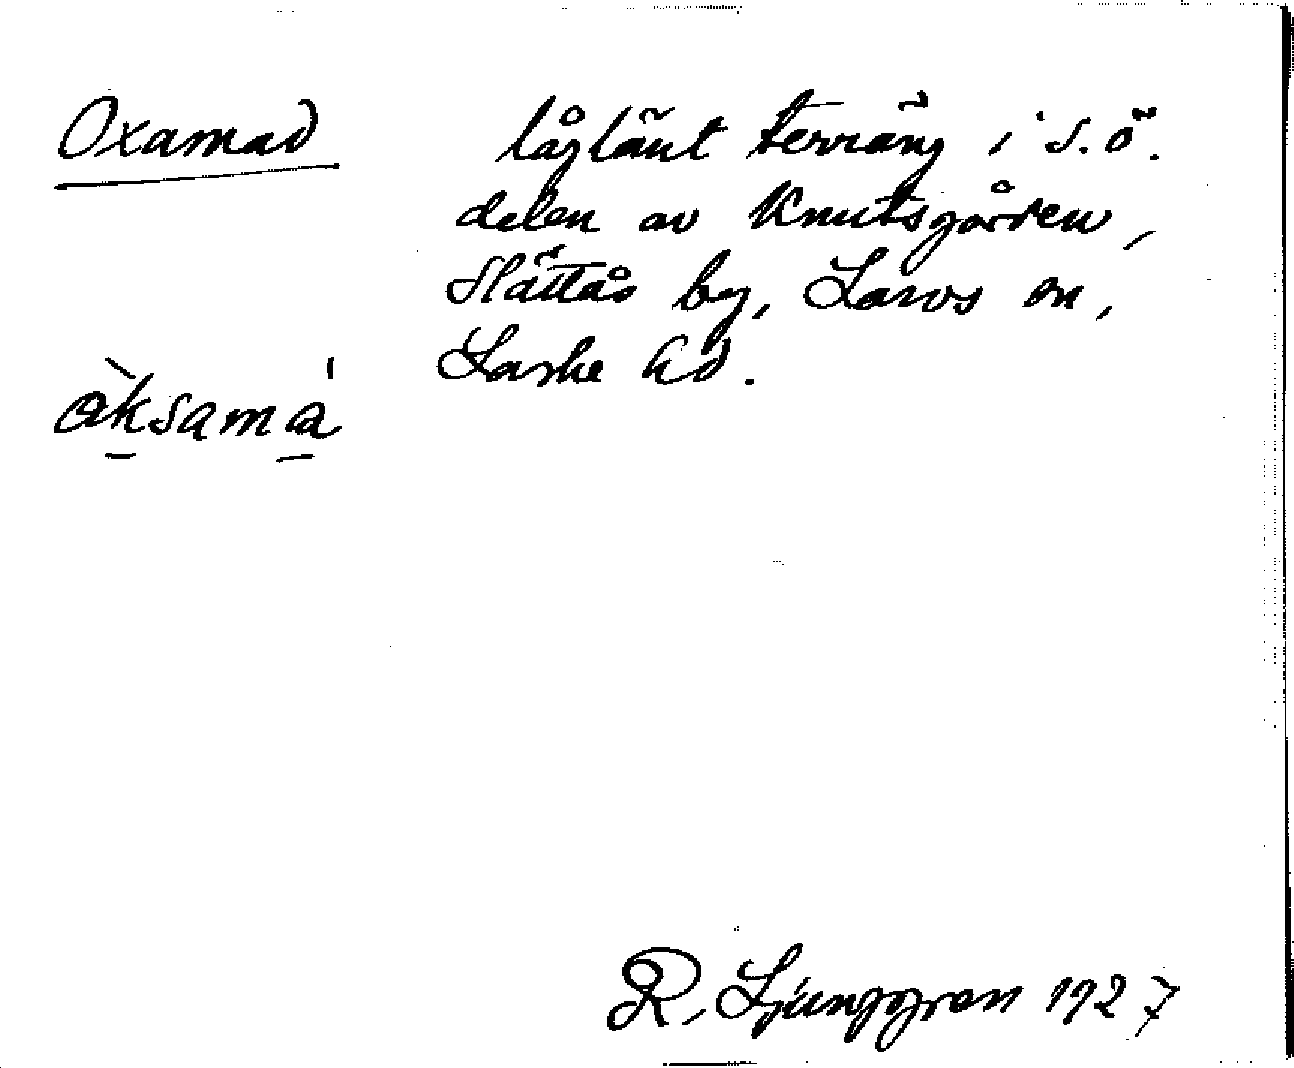 Oxamad
låglänt terräng i s.ö.
delen av Knutsgården,
Slättås by, Larvs sn,
Laske hd.
åksama
R. Ljunggren 1927